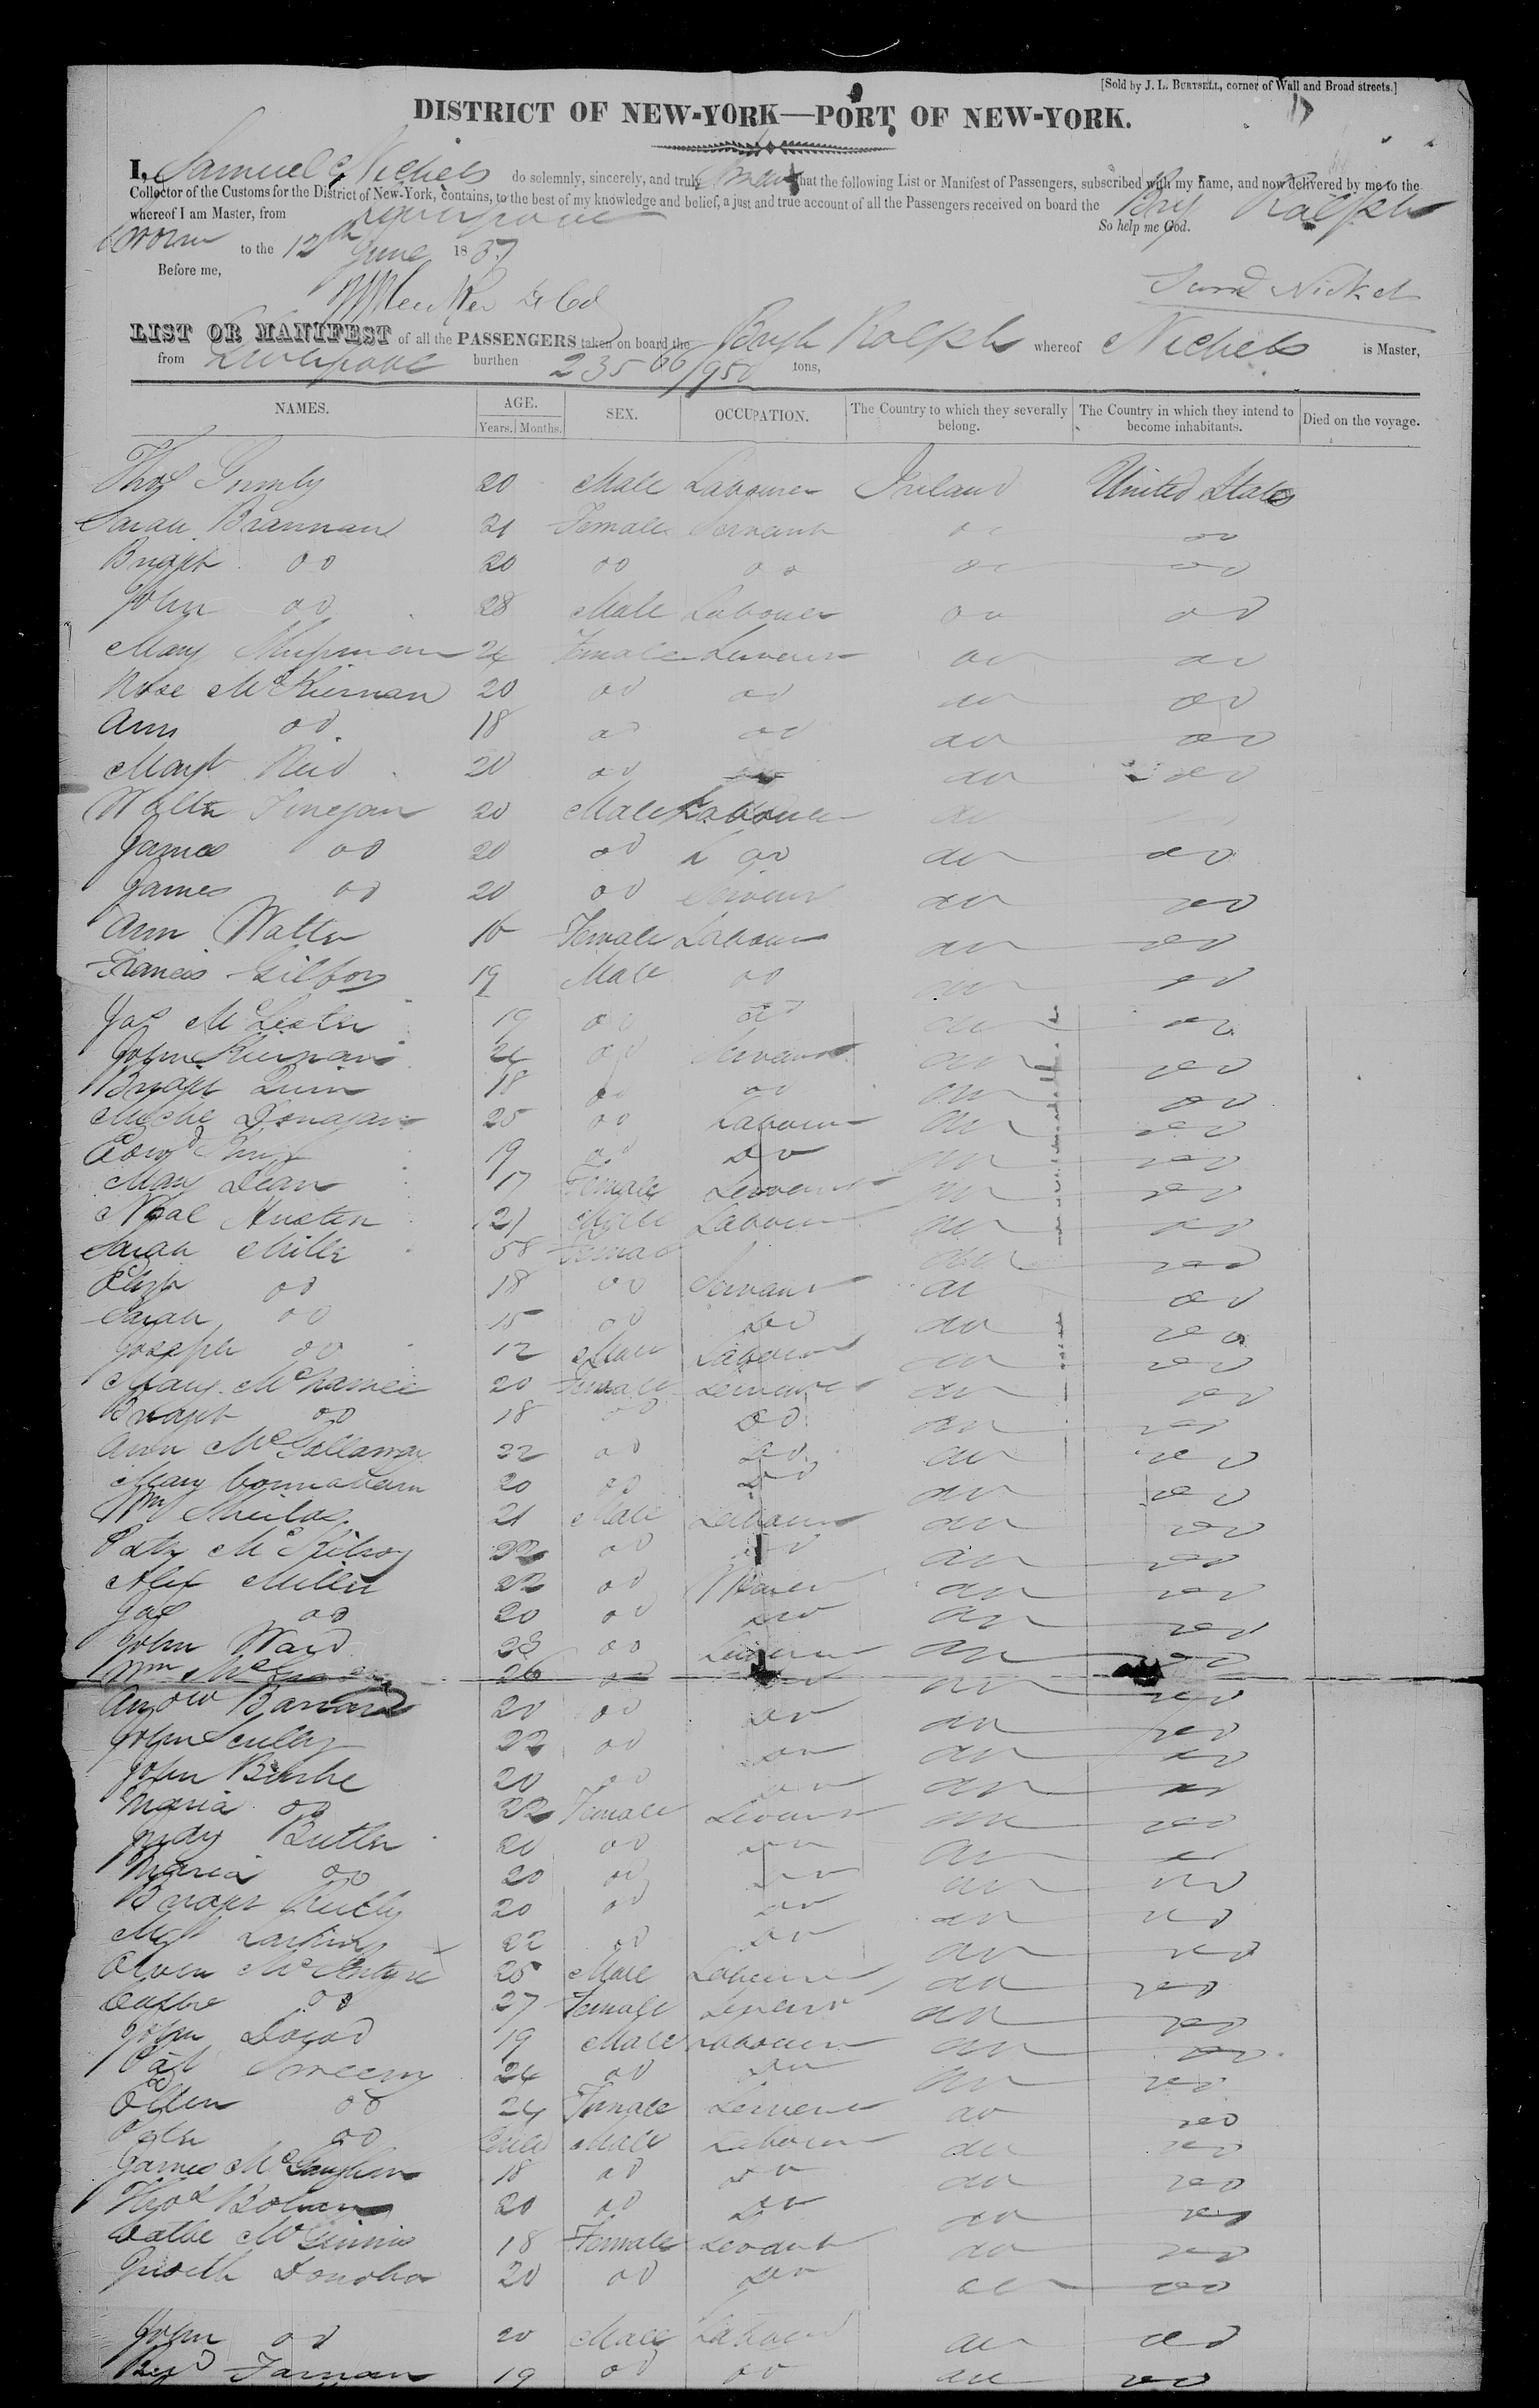 [Sold by J. L. BURTSELL, corner of Wall and Broad streets.]
DISTRICT OF NEW-YORK—PORT OF NEW-YORK.
I, Samuel Nichels do solemnly, sincerely, and truly swear that the following List or Manifest of Passengers, subscribed with my name, and now delivered by me to the
Collector of the Customs for the District of New-York, contains, to the best of my knowledge and belief, a just and true account of all the Passengers received on board the Brig Ralph
whereof I am Master, from Liverpool So help me God.
Sworn to the 12th June 1837
Before me,
Saml Nickels
LIST OR MANIFEST of all the PASSENGERS taken on board the Brigh Ralph whereof Nichels is Master,
from Liverpool burthen 235 66/95 tons,
NAMES. AGE. SEX. OCCUPATION. The Country to which they severally belong. The Country in which they intend to become inhabitants. Died on the voyage.
Years. Months.
Thos Gormly 20 Male Labourer Ireland United States
Sarah Brannan 21 Female Servant do do
Bridgt do 20 do do do do
John do 28 Male Labourer do do
Mary 24 Female Servant do do
Rose McKiernan 20 do do do do
Ann do 18 do do do do
Margt Reid 20 do do do do
Walter Finegan 20 Male Labourer do
James do 20 do do do do
James do 20 do Servant do do
Ann Walter 16 Female Labourer do do
Francis Gilboy 19 Male do do do
Jas McLester 19 do do do do
John Kiernan 24 do Servant do do
Bridgt Quin 18 do do do do
Michl Donagan 25 do Labourer do do
Edwd 19 do do do do
Mary Dean 17 Female Servant do do
Neal Austen 21 Male Labourer do do
Sarah Miller 58 Female do do
Eliza do 18 do Servant do do
Sarah do 15 do do do do
Joseph do 12 Male Labourer do do
Mary McNamee 20 Female Servant do do
Bridgt do 18 do do do do
Ann McGallaway 22 do do do do
Mary Connaham 20 do do do do
Wm Sheilds 21 Male Labourer do do
Patk McKilroy 22 do do do do
Alex Miller 22 do Weaver do do
Jas do 20 do do do do
John Ward 23 do Labourer do do
Wm 26 do do do do
Andw Barnard 20 do do do do
John Scully 22 do do do do
John Burke 20 do do do do
Maria do 22 Female Servant do do
Judy Butler 20 do do do do
Maria do 20 do do do do
Bridgt Reilly 20 do do do do
Mgt Larkin 22 do do do do
Owen McIntyre 25 Male Labourer do do
Cathe do 27 Female Servant do do
John 19 Male Labourer do do
Pat Sweeny 24 do do do do
Ellen do 24 Female Servant do do
Peter do Child Male Labourer do do
James McLaughlin 18 do do do do
Thos 20 do do do do
Cathe McGinnis 18 Female Servant do do
Judith Donohoe 20 do do do do
John do 20 Male Labourer do do
Farnan 19 do do do do